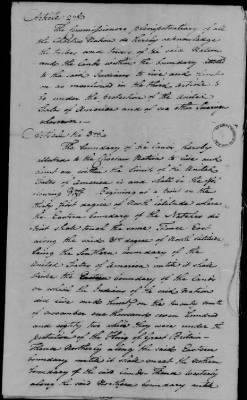 Article 2nd
The Commissioners plenipotentiary of all
the United States in
the tribes and towns of the said Nation
and the lands within the boundary
to the said Indians to live and hunt
on as mentioned in the third article to
be under the protection of the United
States of America and of no other Sovereign
whosoever.
Article the 3rd
The boundary of the lands hereby
allotted to the Nation to live and
hunt on within the limits of the United
States of America is and shall be the following
Beginning at a point on the
thirty first degree of North latitude where
the Eastern boundary of the Natches district
shall touch the same Thence East
along the said 31st degree of North latitude
being the Southern boundary of the
United States of America until it shall
strike the Eastern boundary of the lands
on which the Indians of the said Nation
did live and hunt on the twenty ninth
of November one thousand seven hundred
and eighty two while they were under the
protection of the King of Great Britain
Thence Northerly along the said Eastern
boundary until it shall meet the northern
boundary of the said lands Thence westerly
along the said Northern boundary until